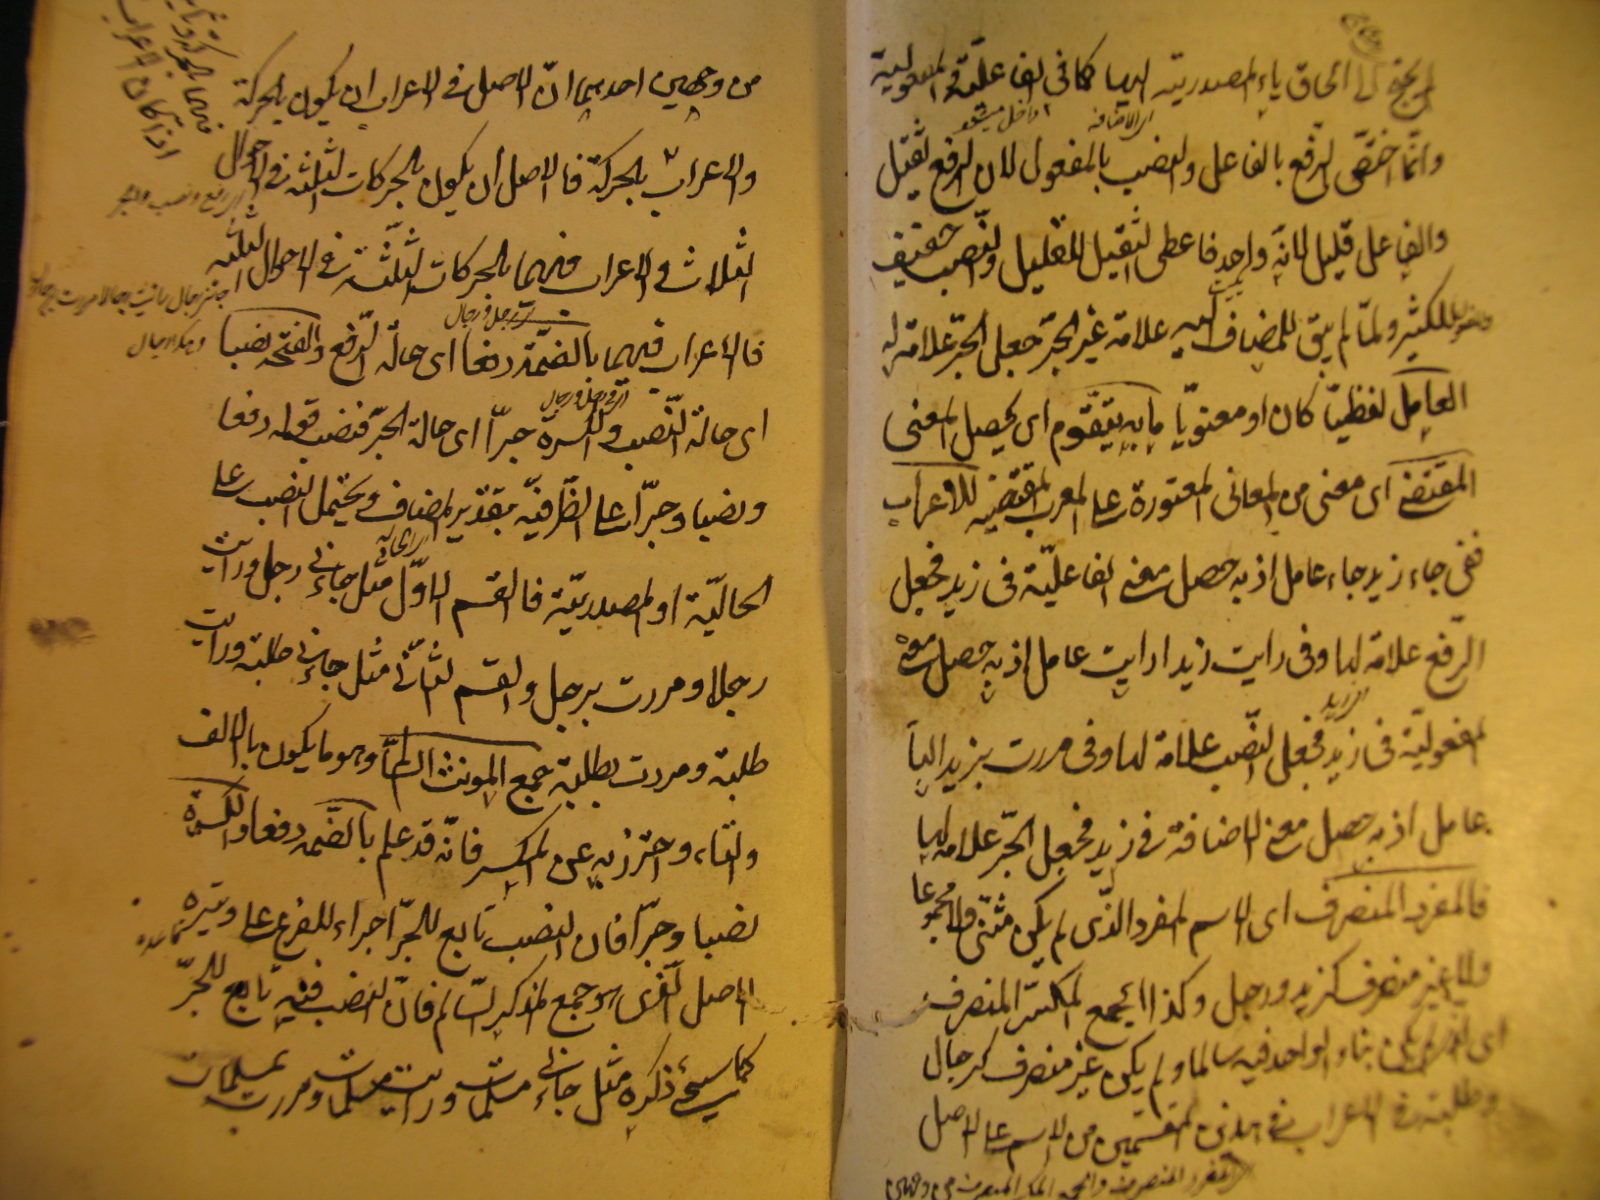 الى الحاق ياء المصدرية اليها كما فى الفاعلية والمفعولية
وانما اختص الرفع بالفاعل والنصب بالمفعول لان الرفع ثقيل
والفاعل قليل لانه واحد فاعطى الثقيل للقليل والنصب خفيف
للكثير ولما لم يبق للمضاف اليه علامة غير الجر جعل الجر علامة له
العامل لفظيا كان او معنويا ما به يتقوم اى يحصل المعنى
المقتضى اى معنى من المعانى المعتورة على المعرب المقتضية للاعراب
ففى جاء زيد جاء عامل اذ به حصل معنى الفاعلية فى زيد فجعل
الرفع علامة لها وفى رايت زيدا رايت عامل اذ به حصل معنى
المفعولية فى زيد فجعل النصب علامة لها وفى مررت بزيد الباء
عامل اذ به حصل معنى الاضافة فى زيد فجعل الجر علامة لها
فالمفرد المنصرف اى الاسم المفرد الذى لم يكن مثنى ولا مجموعا
ولا غير منصرف كزيد ورجل وكذا الجمع المكسر المنصرف
اى الذى لم يكن بناء الواحد فيه سالما ولم يكن غير منصرف كرجال
وطلبة فى الاعراب فى هذين القسمين من الاسم على الاصل
من وجهين احدهما ان الاصل فى الاعراب ان يكون بالحركة
والاعراب بالحركة فالاصل ان يكون بالحركات الثلثة فى الاحوال
الثلاث فى الاعراب فيهما بالحركات الثلثة فى الاحوال الثلثة
فالاعراب فيهما بالضمة رفعا اى حالة الرفع والفتحة نصبا
اى حالة النصب والكسرة جرا اى حالة الجر فنصب قوله رفعا
ونصبا وجرا على الظرفية بتقدير المضاف ويحتمل النصب على
الحالية او المصدرية فالقسم الاول مثل جاءنى رجل ورايت
رجلا ومررت برجل والقسم الثانى مثل جاءنى طلبة ورايت
طلبة ومررت بطلبة جمع المونث السالم وهو ما يكون بالالف
والتاء واحترز به عن المكسر فانه قد علم بالضمة رفعا والكسرة
نصبا وجرا فان النصب تابع للجر اجراء للفرع على وتيرة
الاصل الذى هو جمع المذكر السالم فان النصب فيه تابع للجر
كما سيجئ ذكره مثل جاءنى مسلمات ورايت مسلمات ومررت بمسلمات